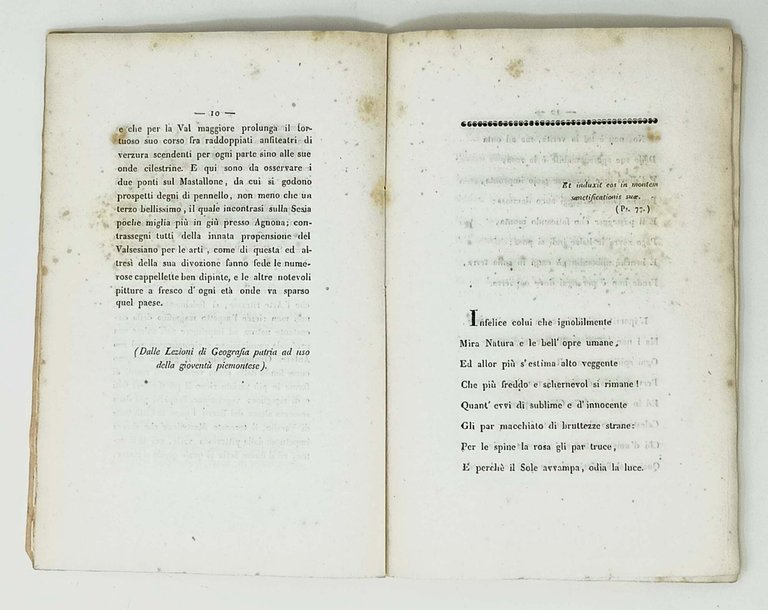 — 10 —
e che per la Val maggiore prolunga il tor-
tuoso suo corso fra raddoppiati anfiteatri di
verzura scendenti per ogni parte sino alle sue
onde cilestrine. E qui sono da osservare i
due ponti sul Mastallone, da cui si godono
prospetti degni di pennello, non meno che un
terzo bellissimo, il quale incontrasi sulla Sesia
poche miglia più in giù presso Agnona; con-
trassegni tutti della innata propensione del
Valsesiano per le arti, come di questa ed al-
tresì della sua divozione fanno fede le nume-
rose cappellette ben dipinte, e le altre notevoli
pitture a fresco d'ogni età onde va sparso
quel paese.
(Dalle Lezioni di Geografia patria ad uso
della gioventù piemontese).
Et induxit eos in montem
sanctificationis suæ.
(Ps. 77.)
Infelice colui che ignobilmente
Mira Natura e le bell' opre umane,
Ed allor più s'estima alto veggente
Che più freddo e schernevol si rimane!
Quant' evvi di sublime e d'innocente
Gli par macchiato di bruttezze strane:
Per le spine la rosa gli par truce,
E perchè il Sole avvampa, odia la luce.